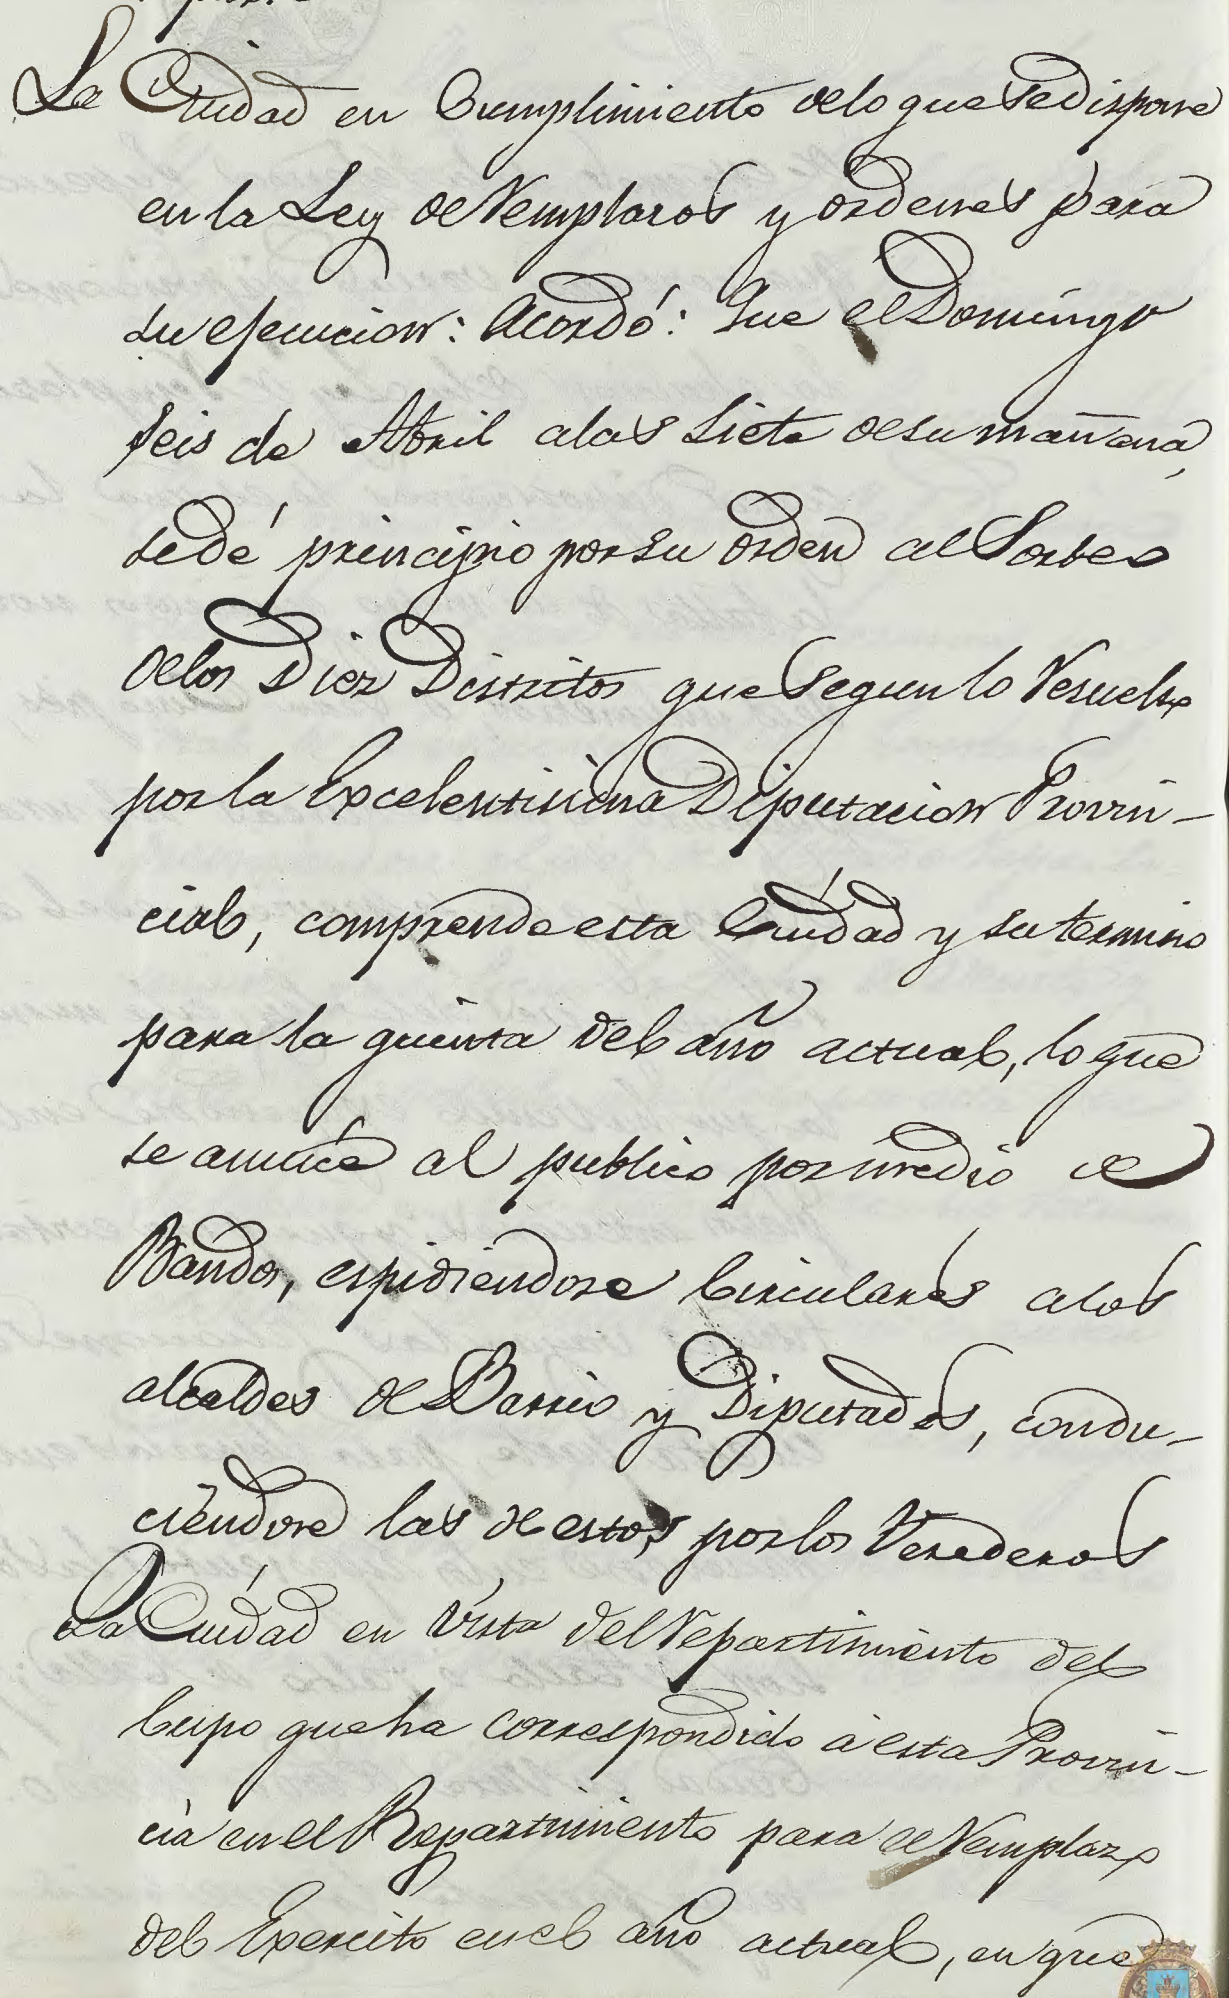 La Ciudad en Cumplimiento de lo que se dispone
en la Ley de Remplazos y ordenes para
su ejecucion: Acordó: Que el Domingo
seis de Abril a las siete de su mañana,
se dé principio por su orden al Sorteo
de los Diez Distritos que segun lo Resuelto
por la Excelentisima Diputacion Provin-
cial, comprende esta Ciudad y su termino
para la quinta del año actual, lo que
se anuncie al publico por medio de
Bandos, espidiendose Circulares a los
alcaldes de Barrio y Diputados, condu-
ciendose las de estos, por los Verederos
La Ciudad en Vista del Repartimiento del
Cupo que ha correspondido á esta Provin-
cia en el Repartimiento para el Remplazo
del Exercito en el año actual, en que